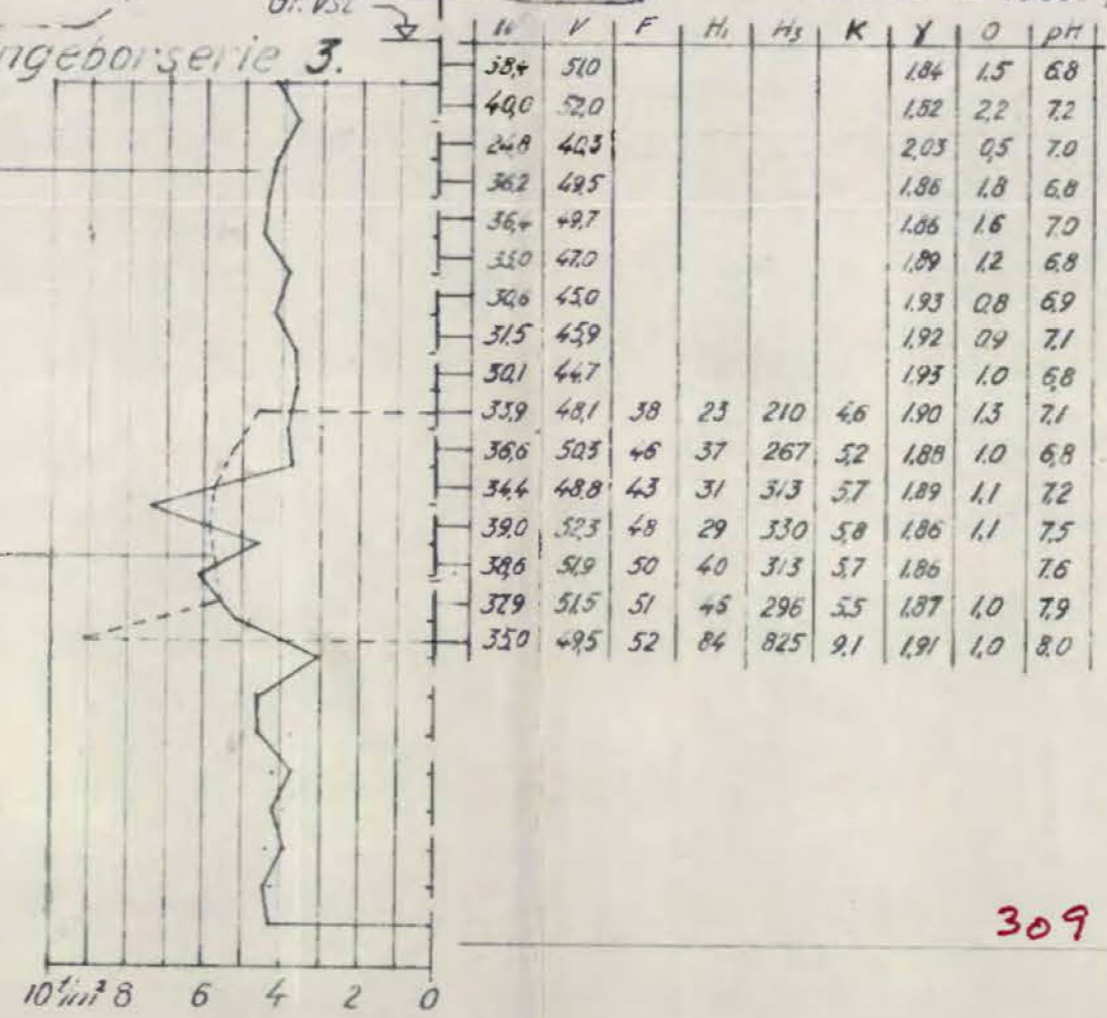 Gr. vst.
ngeborserie 3.
W V F H₁ H₃ K γ O pH
38,4 51,0 1.84 1.5 6.8
40,0 52,0 1.82 2.2 7.2
24,8 40,3 2,03 0,5 7.0
36,2 49,5 1.86 1.8 6.8
36,4 49,7 1.86 1.6 7.0
33,0 47,0 1,89 1.2 6.8
30,6 45,0 1.93 0,8 6,9
31,5 45,9 1,92 0,9 7,1
30,1 44,7 1.93 1.0 6,8
33,9 48,1 38 23 210 4,6 1.90 1.3 7.1
36,6 50,3 46 37 267 5,2 1.88 1.0 6,8
34,4 48,8 43 31 313 5,7 1.89 1.1 7.2
39,0 52,3 48 29 330 5,8 1.86 1.1 7.5
38,6 51,9 50 40 313 5,7 1.86 7.6
37,9 51,5 51 45 296 5,5 1.87 1,0 7,9
35,0 49,5 52 84 825 9,1 1,91 1,0 8.0
309
10 t/m² 8 6 4 2 0